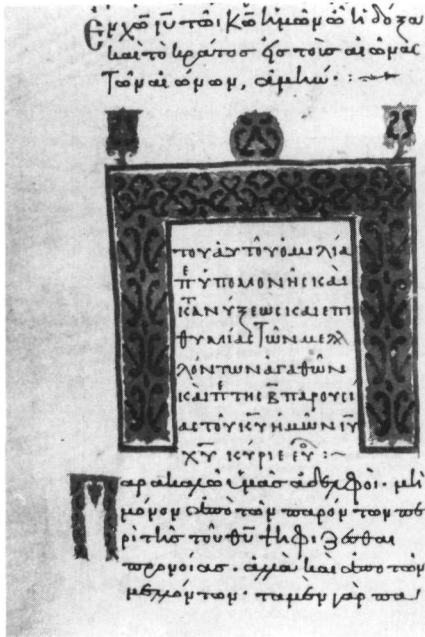 Ἐν χῶ ἰῦ τῶι κῶ ἡμῶν ὧ ἡ δόξα
καὶ τὸ κράτος εἰς τοὺς αἰῶνας
τῶν αἰώνων, ἀμήν :
τοῦ αὐτοῦ ὁμιλία
πε ὑπομονῆς καὶ
κτανύξεως καὶ ἐπι
θυμίας τῶν μελ
λόντων ἀγαθῶν
καὶ πε τῆς β̄ παρουσί
ας τοῦ κ̄υ ἡμῶν ῑυ
χ̄ῡ κύριε ευ :~
Παρακαλῶ ὑμᾶς ἀδελφοί· μὴ
μόνον ἀπὸ τῶν παρόντων πε
ρὶ τῆς τοῦ θῡ ψηφίζεσθαι
προνοίας. ἀλλὰ καὶ ἀπὸ τῶν
μελλόντων· τὰ μὲν γὰρ πα